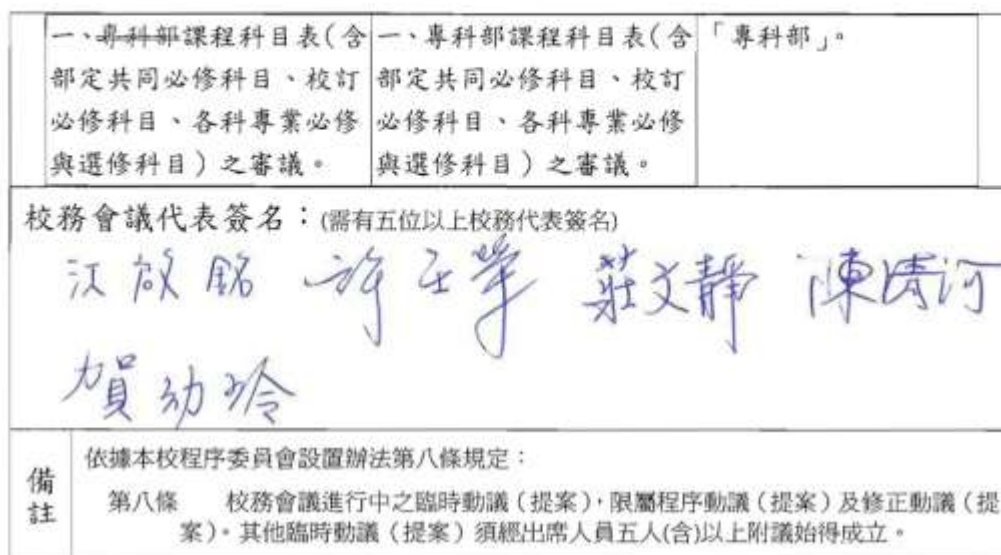 一、專科部課程科目表(含
部定共同必修科目、校訂
必修科目、各科專業必修
與選修科目)之審議。
一、專科部課程科目表(含
部定共同必修科目、校訂
必修科目、各科專業必修
與選修科目)之審議。
「專科部」。
校務會議代表簽名：(需有五位以上校務代表簽名)
江啟銘 許 莊文靜 陳清河
賀幼玲
備註
依據本校程序委員會設置辦法第八條規定：
第八條 校務會議進行中之臨時動議（提案），限屬程序動議（提案）及修正動議（提
案）。其他臨時動議（提案）須經出席人員五人(含)以上附議始得成立。